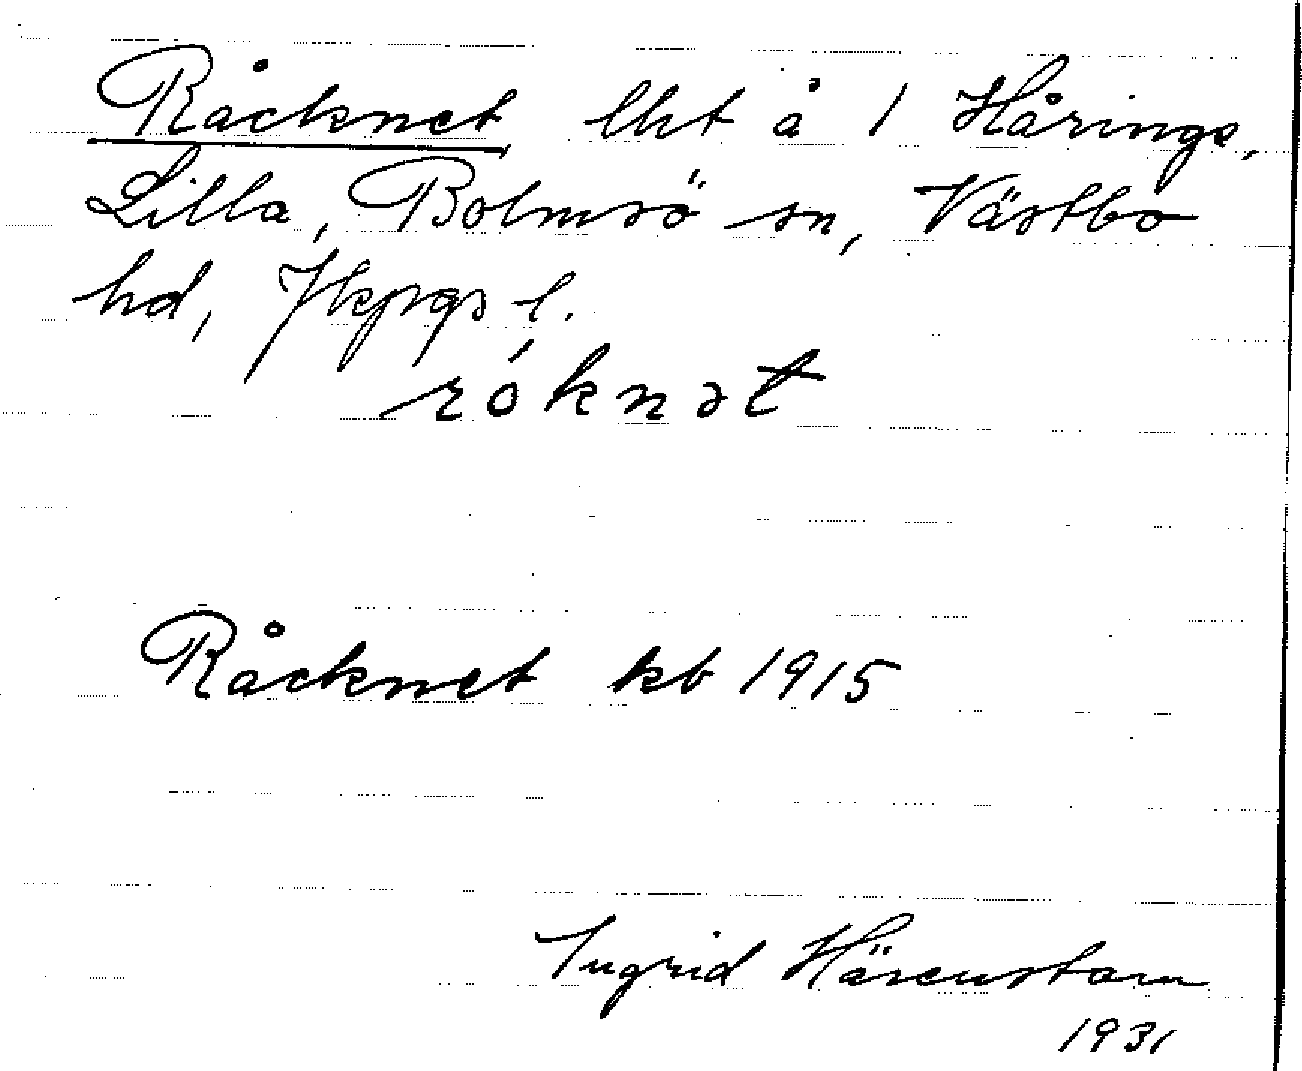 Råcknet lht å 1 Hårings,
Lilla, Bolmsö sn, Västbo
hd, Jkpgs l.
róknət
Råcknet kb 1915
Ingrid Härenstam
1931